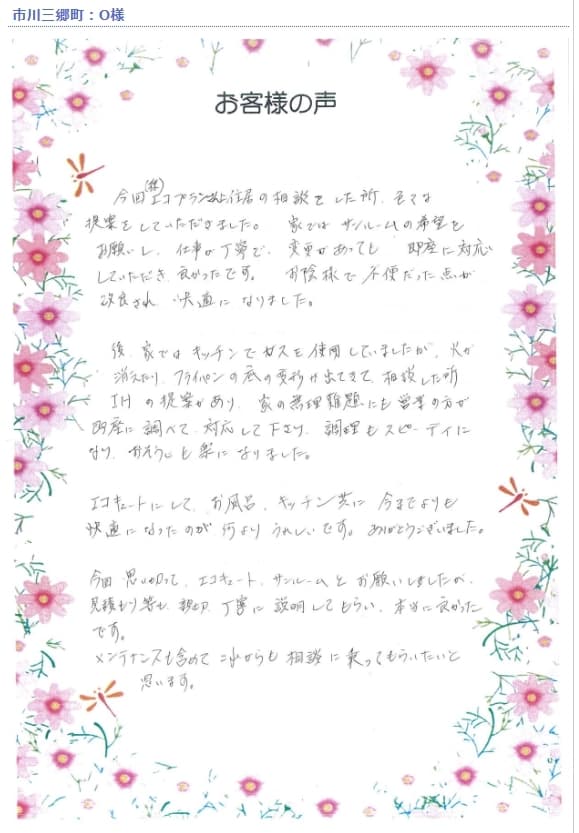 市川三郷町：O様
お客様の声
今回(株)エコプランさんに住居の相談をした所、色々な
提案をしていただきました。 家では サンルームの希望を
お願いし、仕事が丁寧で、変更があっても 即座に対応
していただき、良かったです。 お陰様で 不便だった点が
改良され 快適に なりました。
後、家では キッチンで ガスを使用していましたが、火が
消えたり、フライパンの底の変形が出てきて、相談した所
IHの提案があり、家の無理難題にも営業の方が
即座に調べて、対応して下さり、調理もスピーディに
なり、おそうじも楽になりました。
エコキュートにして、お風呂、キッチン共に 今までよりも
快適になったのが 何より うれしいです。 ありがとうございました。
今回 思い切って、エコキュート、サンルームと お願いしましたが、
見積もり等も、親切、丁寧に 説明してもらい、本当に良かった
です。
メンテナンスも含めて これからも 相談に 乗ってもらいたいと
思います。